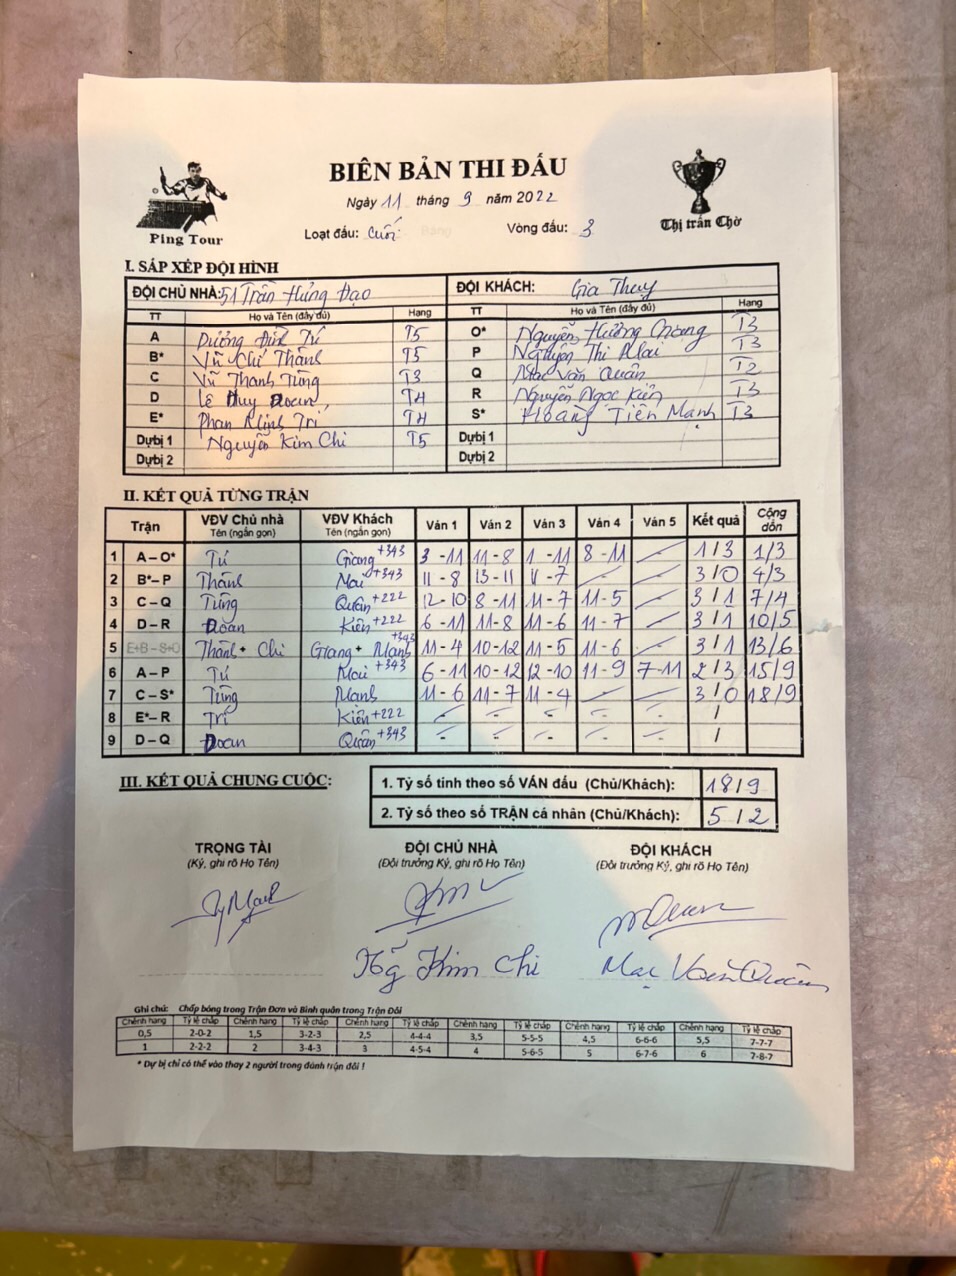 BIÊN BẢN THI ĐẤU
Ngày 11 tháng 9 năm 2022
Loạt đấu: Cuối Vòng đấu: 3
Ping Tour
Thị trấn Chờ
I. SẮP XẾP ĐỘI HÌNH
ĐỘI CHỦ NHÀ: 51 Trần Hưng Đạo ĐỘI KHÁCH: Gia Thụy
TT Họ và Tên (đầy đủ) Hạng TT Họ và Tên (đầy đủ) Hạng
A Dương Đình Tú T5 O* Nguyễn Hương Giang T3
B* Vũ Chí Thành T5 P Nguyễn Thị Mai T3
C Vũ Thanh Tùng T3 Q Mạc Văn Quân T2
D Lê Duy Đoan T4 R Nguyễn Ngọc Kiên T3
E* Phan Minh Trí T4 S* Hoàng Tiến Mạnh T3
Dựbị 1 Nguyễn Kim Chi T5 Dựbị 1
Dựbị 2 Dựbị 2
II. KẾT QUẢ TỪNG TRẬN
Trận VĐV Chủ nhà Tên (ngắn gọn) VĐV Khách Tên (ngắn gọn) Ván 1 Ván 2 Ván 3 Ván 4 Ván 5 Kết quả Cộng dồn
1 A – O* Tú Giang +343 3 - 11 11 - 8 1 - 11 8 - 11 - 1 / 3 1/3
2 B*– P Thành Mai +343 11 - 8 13 - 11 11 - 7 - - 3 / 0 4/3
3 C – Q Tùng Quân +222 12 - 10 8 - 11 11 - 7 11 - 5 - 3 / 1 7/4
4 D – R Đoan Kiên +222 6 - 11 11 - 8 11 - 6 11 - 7 - 3 / 1 10/5
5 E+B – S+O Thành + Chi Giang + Mạnh +343 11 - 4 10 - 12 11 - 5 11 - 6 - 3 / 1 13/6
6 A – P Tú Mai +343 6 - 11 10 - 12 12 - 10 11 - 9 7 - 11 2 / 3 15/9
7 C – S* Tùng Mạnh 11 - 6 11 - 7 11 - 4 - - 3 / 0 18/9
8 E*– R Trí Kiên +222 - - - - - /
9 D – Q Đoan Quân +343 - - - - - /
III. KẾT QUẢ CHUNG CUỘC:
1. Tỷ số tính theo số VÁN đấu (Chủ/Khách): 18/9
2. Tỷ số theo số TRẬN cá nhân (Chủ/Khách): 5/2
TRỌNG TÀI ĐỘI CHỦ NHÀ ĐỘI KHÁCH
(Ký, ghi rõ Họ Tên) (Đội trưởng Ký, ghi rõ Họ Tên) (Đội trưởng Ký, ghi rõ Họ Tên)
Kim Chi Mạc Văn Quân
Ghi chú: Chấp bóng trong Trận Đơn và Bình quân trong Trận Đôi
Chênh hạng Tỷ lệ chấp Chênh hạng Tỷ lệ chấp Chênh hạng Tỷ lệ chấp Chênh hạng Tỷ lệ chấp Chênh hạng Tỷ lệ chấp Chênh hạng Tỷ lệ chấp
0,5 2-0-2 1,5 3-2-3 2,5 4-4-4 3,5 5-5-5 4,5 6-6-6 5,5 7-7-7
1 2-2-2 2 3-4-3 3 4-5-4 4 5-6-5 5 6-7-6 6 7-8-7
* Dự bị chỉ có thể vào thay 2 người trong đánh trận đôi !